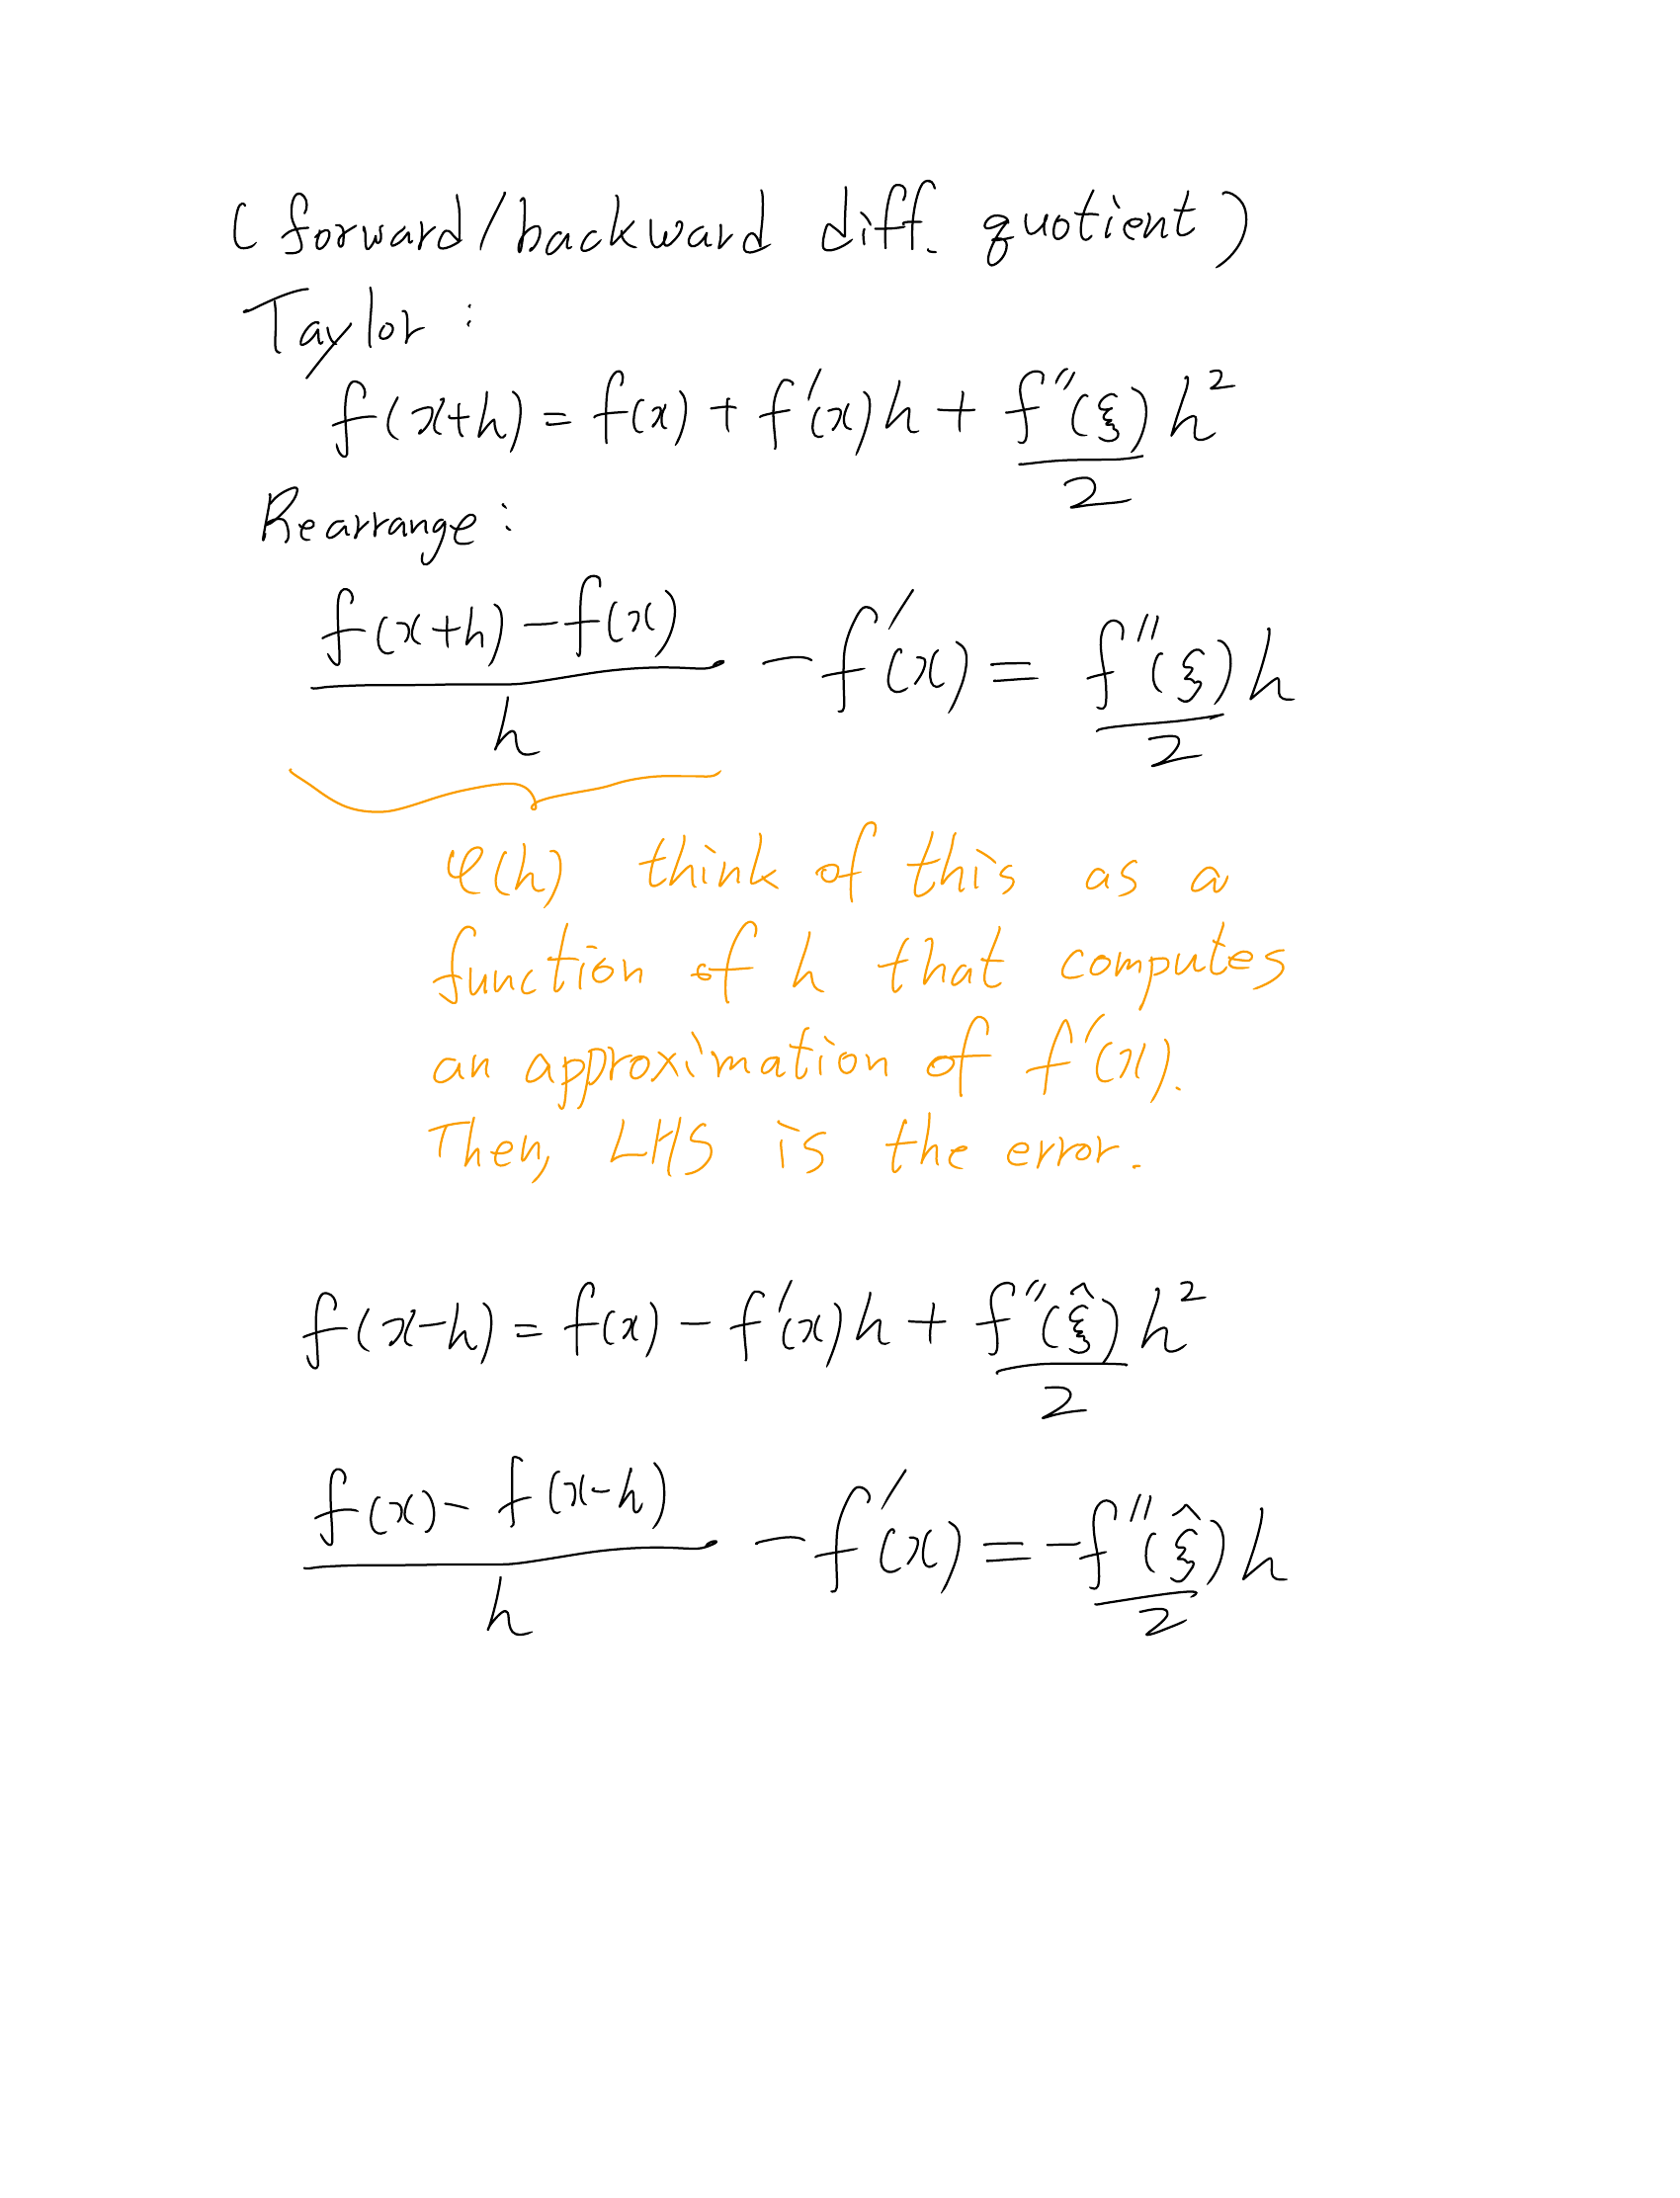 (forward/backward diff. quotient)
Taylor :
f(x+h) = f(x) + f'(x)h + f''(ξ)/2 h²
Rearrange :
(f(x+h) - f(x))/h - f'(x) = f''(ξ)/2 h
φ(h) think of this as a
function of h that computes
an approximation of f'(x).
Then, LHS is the error.
f(x-h) = f(x) - f'(x)h + f''(ξ̂)/2 h²
(f(x) - f(x-h))/h - f'(x) = -f''(ξ̂)/2 h